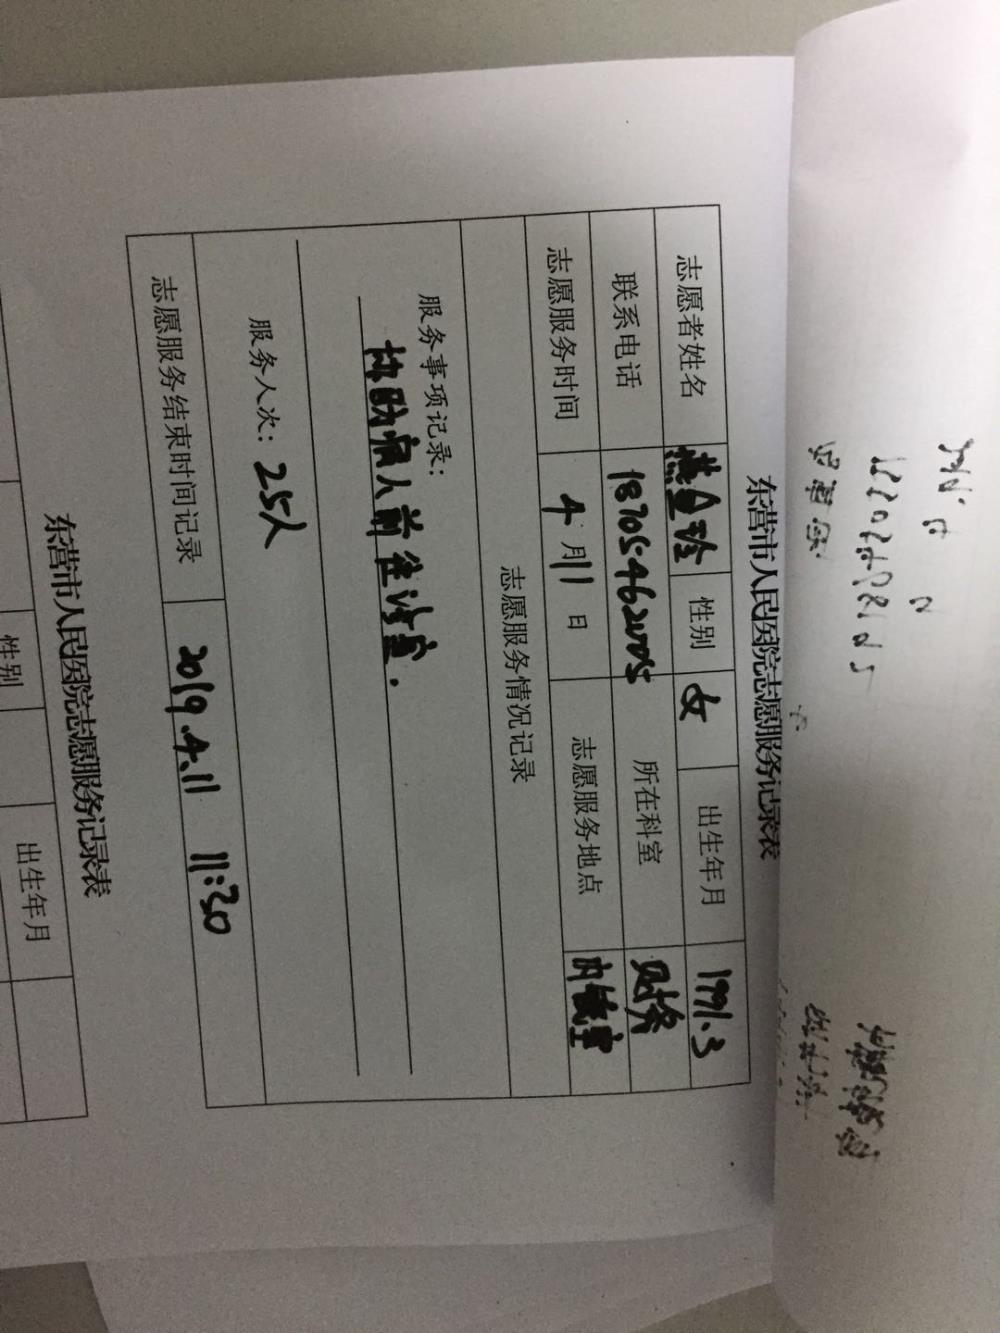 东营市人民医院志愿服务记录表
志愿者姓名 燕 玲 性别 女 出生年月 1991.3
联系电话 18705462005 所在科室 财务
志愿服务时间 4月11日 志愿服务地点 内镜室
志愿服务情况记录
服务事项记录：
协助病人前往诊室.
服务人次：25人
志愿服务结束时间记录 2019.4.11 11:30
东营市人民医院志愿服务记录表
性别 出生年月